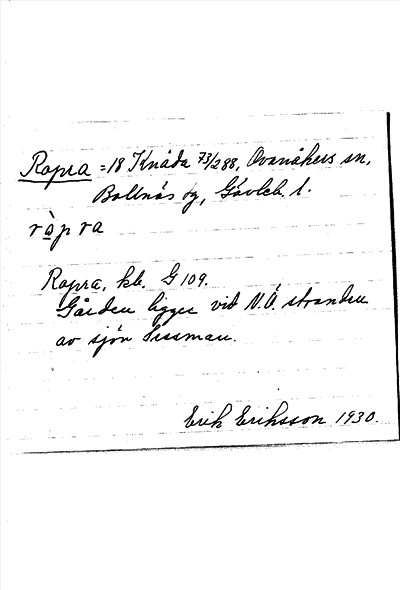 Ropra = 18 Knåda 73/288, Ovanåkers sn,
Bollnäs tg, Gävleb. l.
ràp ra
Ropra, kb. G 109.
Gården ligger vid N.Ö. stranden
av sjön Tissman.
Erik Eriksson 1930.